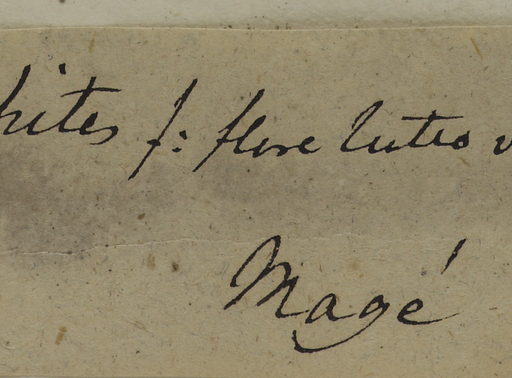 hites f: flore luteo
Magé